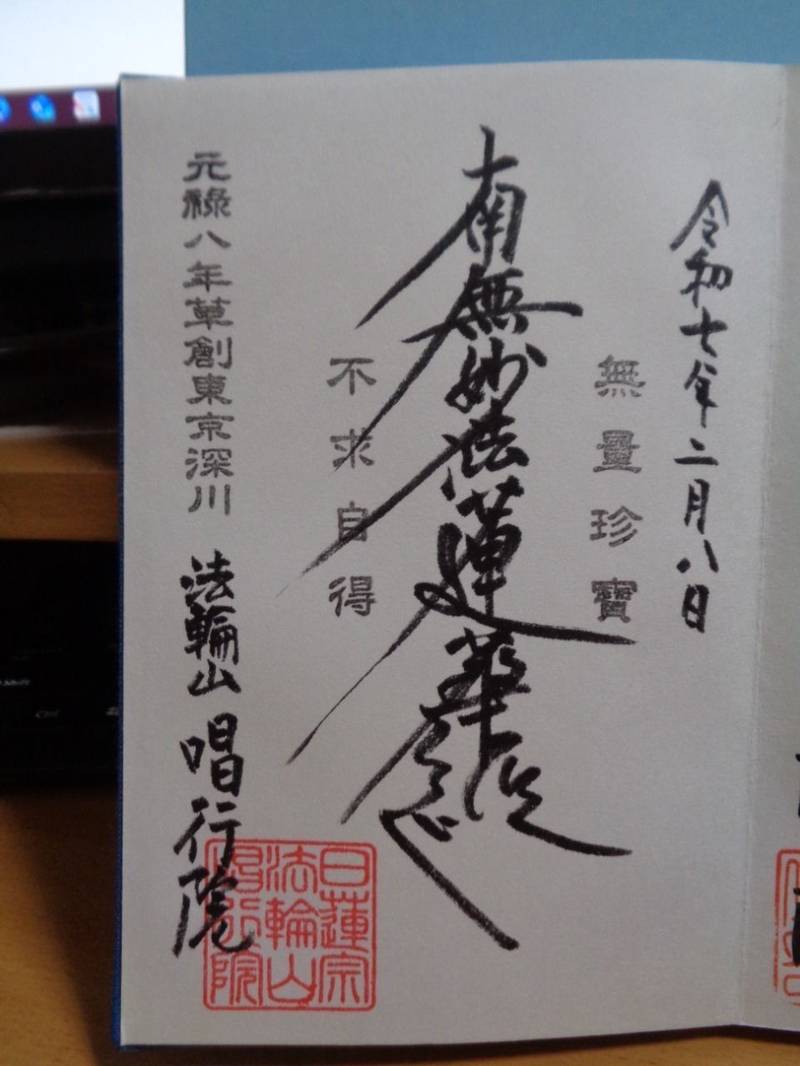 令和七年二月八日
無量珍寶
南無妙法蓮華経
不求自得
元禄八年草創東京深川
法輪山 唱行院
日蓮宗
法輪山
唱行院